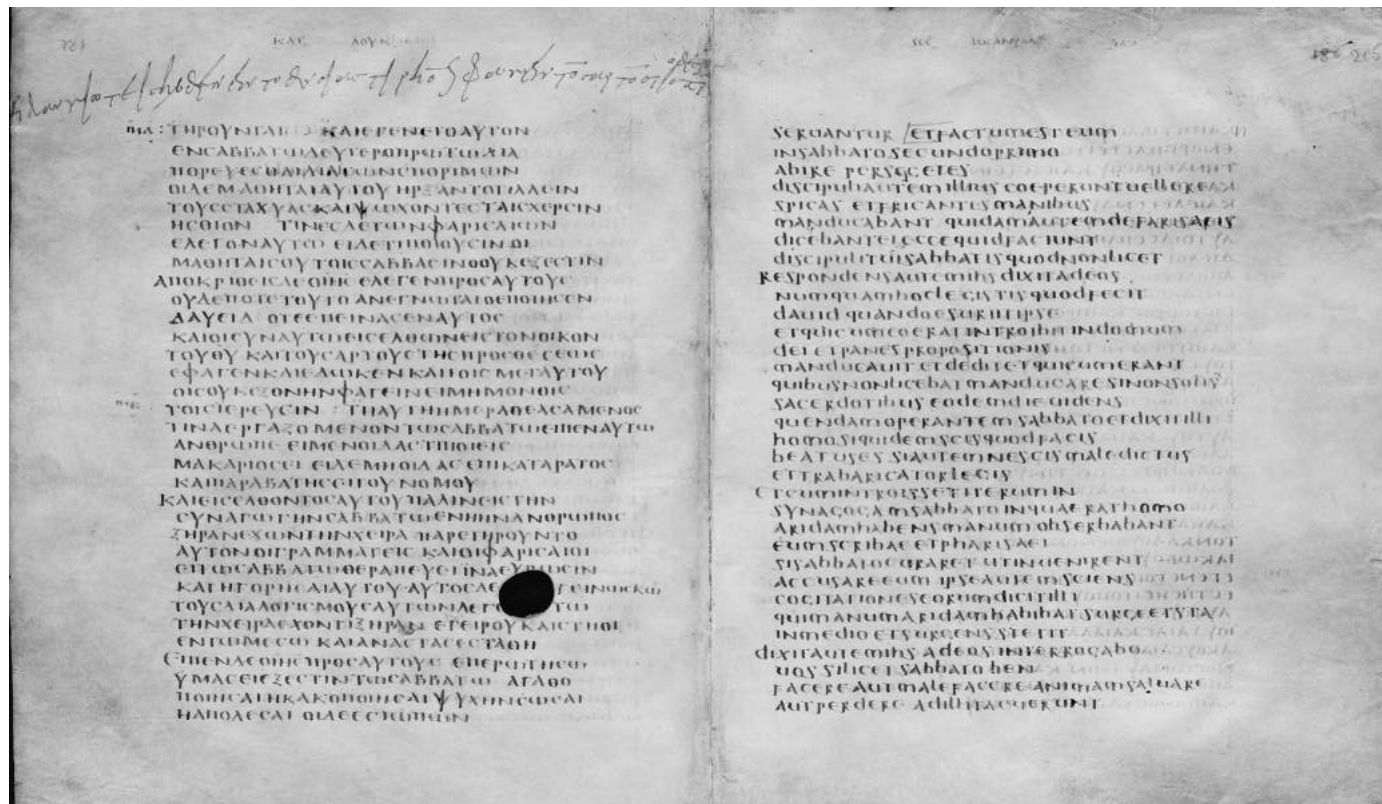 ΚΑΤ ΛΟΥΚ
ΤΗΡΟΥΝΤΑΙ ΚΑΙ ΕΓΕΝΕΤΟ ΑΥΤΟΝ
ΕΝ ΣΑΒΒΑΤΩ ΔΕΥΤΕΡΟΠΡΩΤΩ ΔΙΑ
ΠΟΡΕΥΕΣΘΑΙ ΔΙΑ ΤΩΝ ΣΠΟΡΙΜΩΝ
ΟΙ ΔΕ ΜΑΘΗΤΑΙ ΑΥΤΟΥ ΗΡΞΑΝΤΟ ΤΙΛΛΕΙΝ
ΤΟΥΣ ΣΤΑΧΥΑΣ ΚΑΙ ΨΩΧΟΝΤΕΣ ΤΑΙΣ ΧΕΡΣΙΝ
ΗΣΘΙΟΝ ΤΙΝΕΣ ΔΕ ΤΩΝ ΦΑΡΙΣΑΙΩΝ
ΕΛΕΓΟΝ ΑΥΤΩ ΕΙΔΕ ΤΙ ΠΟΙΟΥΣΙΝ ΟΙ
ΜΑΘΗΤΑΙ ΣΟΥ ΤΟΙΣ ΣΑΒΒΑΣΙΝ Ο ΟΥΚ ΕΞΕΣΤΙΝ
ΑΠΟΚΡΙΘΕΙΣ ΔΕ Ο ΙΗΣ ΕΛΕΓΕΝ ΠΡΟΣ ΑΥΤΟΥΣ
ΟΥΔΕΠΟΤΕ ΤΟΥΤΟ ΑΝΕΓΝΩΤΑΙ Ο ΕΠΟΙΗΣΕΝ
ΔΑΥΕΙΔ ΟΤΕ ΕΠΕΙΝΑΣΕΝ ΑΥΤΟΣ
ΚΑΙ ΟΙ ΣΥΝ ΑΥΤΩ ΕΙΣΕΛΘΩΝ ΕΙΣ ΤΟΝ ΟΙΚΟΝ
ΤΟΥ ΘΥ ΚΑΙ ΤΟΥΣ ΑΡΤΟΥΣ ΤΗΣ ΠΡΟΣΘΕΣΕΩΣ
ΕΦΑΓΕΝ ΚΑΙ ΕΔΩΚΕΝ ΚΑΙ ΤΟΙΣ ΜΕΤ ΑΥΤΟΥ
ΟΙΣ ΟΥΚ ΕΞΟΝ ΗΝ ΦΑΓΕΙΝ ΕΙ ΜΗ ΜΟΝΟΙΣ
ΤΟΙΣ ΙΕΡΕΥΣΙΝ : ΤΗ ΑΥΤΗ ΗΜΕΡΑ ΘΕΑΣΑΜΕΝΟΣ
ΤΙΝΑ ΕΡΓΑΖΟΜΕΝΟΝ ΤΩ ΣΑΒΒΑΤΩ ΕΙΠΕΝ ΑΥΤΩ
ΑΝΘΡΩΠΕ ΕΙ ΜΕΝ ΟΙΔΑΣ ΤΙ ΠΟΙΕΙΣ
ΜΑΚΑΡΙΟΣ ΕΙ ΕΙ ΔΕ ΜΗ ΟΙΔΑΣ ΕΠΙΚΑΤΑΡΑΤΟΣ
ΚΑΙ ΠΑΡΑΒΑΤΗΣ ΕΙ ΤΟΥ ΝΟΜΟΥ
ΚΑΙ ΕΙΣΕΛΘΟΝΤΟΣ ΑΥΤΟΥ ΠΑΛΙΝ ΕΙΣ ΤΗΝ
ΣΥΝΑΓΩΓΗΝ ΣΑΒΒΑΤΩ ΕΝ Η ΗΝ ΑΝΘΡΩΠΟΣ
ΞΗΡΑΝ ΕΧΩΝ ΤΗΝ ΧΕΙΡΑ ΠΑΡΕΤΗΡΟΥΝΤΟ
ΑΥΤΟΝ ΟΙ ΓΡΑΜΜΑΤΕΙΣ ΚΑΙ ΟΙ ΦΑΡΙΣΑΙΟΙ
ΕΙ ΤΩ ΣΑΒΒΑΤΩ ΘΕΡΑΠΕΥΕΙ ΙΝΑ ΕΥΡΩΣΙΝ
ΚΑΤΗΓΟΡΗΣΑΙ ΑΥΤΟΥ ΑΥΤΟΣ ΔΕ ΓΕΙΝΩΣΚΩ
ΤΟΥΣ ΔΙΑΛΟΓΙΣΜΟΥΣ ΑΥΤΩΝ ΛΕΓΕ ΤΩ
ΤΗΝ ΧΕΙΡΑ ΕΧΟΝΤΙ ΞΗΡΑΝ ΕΓΕΙΡΟΥ ΚΑΙ ΣΤΗΘΙ
ΕΝ ΤΩ ΜΕΣΩ ΚΑΙ ΑΝΑΣΤΑΣ ΕΣΤΑΘΗ
ΕΙΠΕΝ ΔΕ Ο ΙΗΣ ΠΡΟΣ ΑΥΤΟΥΣ ΕΠΕΡΩΤΗΣΩ
ΥΜΑΣ ΕΙ ΕΞΕΣΤΙΝ ΤΩ ΣΑΒΒΑΤΩ ΑΓΑΘΟ
ΠΟΙΗΣΑΙ Η ΚΑΚΟΠΟΙΗΣΑΙ ΨΥΧΗΝ ΣΩΣΑΙ
Η ΑΠΟΛΕΣΑΙ ΟΙ ΔΕ ΕΣΙΩΠΩΝ
SEC
seruantur et factum est eum
in sabbato secundo primo
abire per segetes
discipuli autem illius coeperunt uellere
spicas et fricantes manibus
manducabant quidam autem de farisaeis
dicebant ei ecce quid faciunt
discipuli tui sabbatis quod non licet
respondens autem ihs dixit ad eos
numquam hoc legistis quod fecit
dauid quando esuriit ipse
et qui cum eo erat introibit in domum
dei et panes propositionis
manducauit et dedit et qui cum erant
quibus non licebat manducare si non solis
sacerdotibus eodem die uidens
quendam operantem sabbato et dixit illi
homo siquidem scis quod facis
beatus es si autem nescis maledictus
et trabaricator legis
et cum introisset iterum in
synagogam sabbato in qua erat homo
aridam habens manum obserbabant
eum scribae et pharisaei
si sabbato curaret ut inuenirent
accusare eum ipse autem sciens
cogitationes eorum dicit illi
qui manum aridam habebat surge et sta
in medio et surgens stetit
dixit autem ihs ad eos interrogabo
uos si licet sabbato ben
facere aut male facere animam saluare
aut perdere ad illi tacuerunt